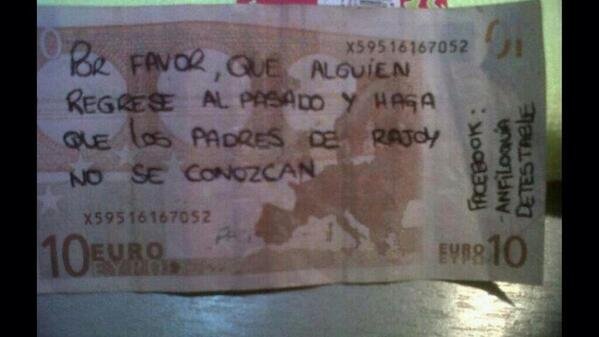 X59516167052
POR FAVOR, QUE ALGUIEN
REGRESE AL PASADO Y HAGA
QUE LOS PADRES DE RAJOY
NO SE CONOZCAN
FACEBOOK:
-ANFILOQUIA
DETESTABLE
X59516167052
10 EURO
ΕΥΡΩ
EURO 10
ΕΥΡΩ